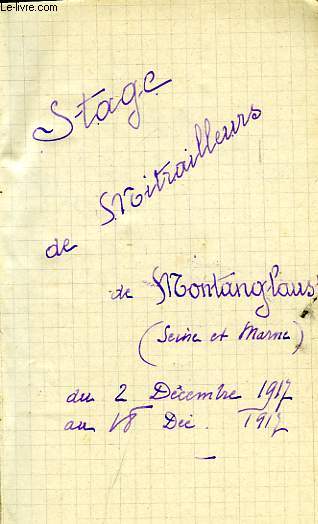 Le-livre.com
Stage
de Mitrailleurs
de Montanglaust
(Seine et Marne)
du 2 Décembre 1917
au 18 Déc. 1917